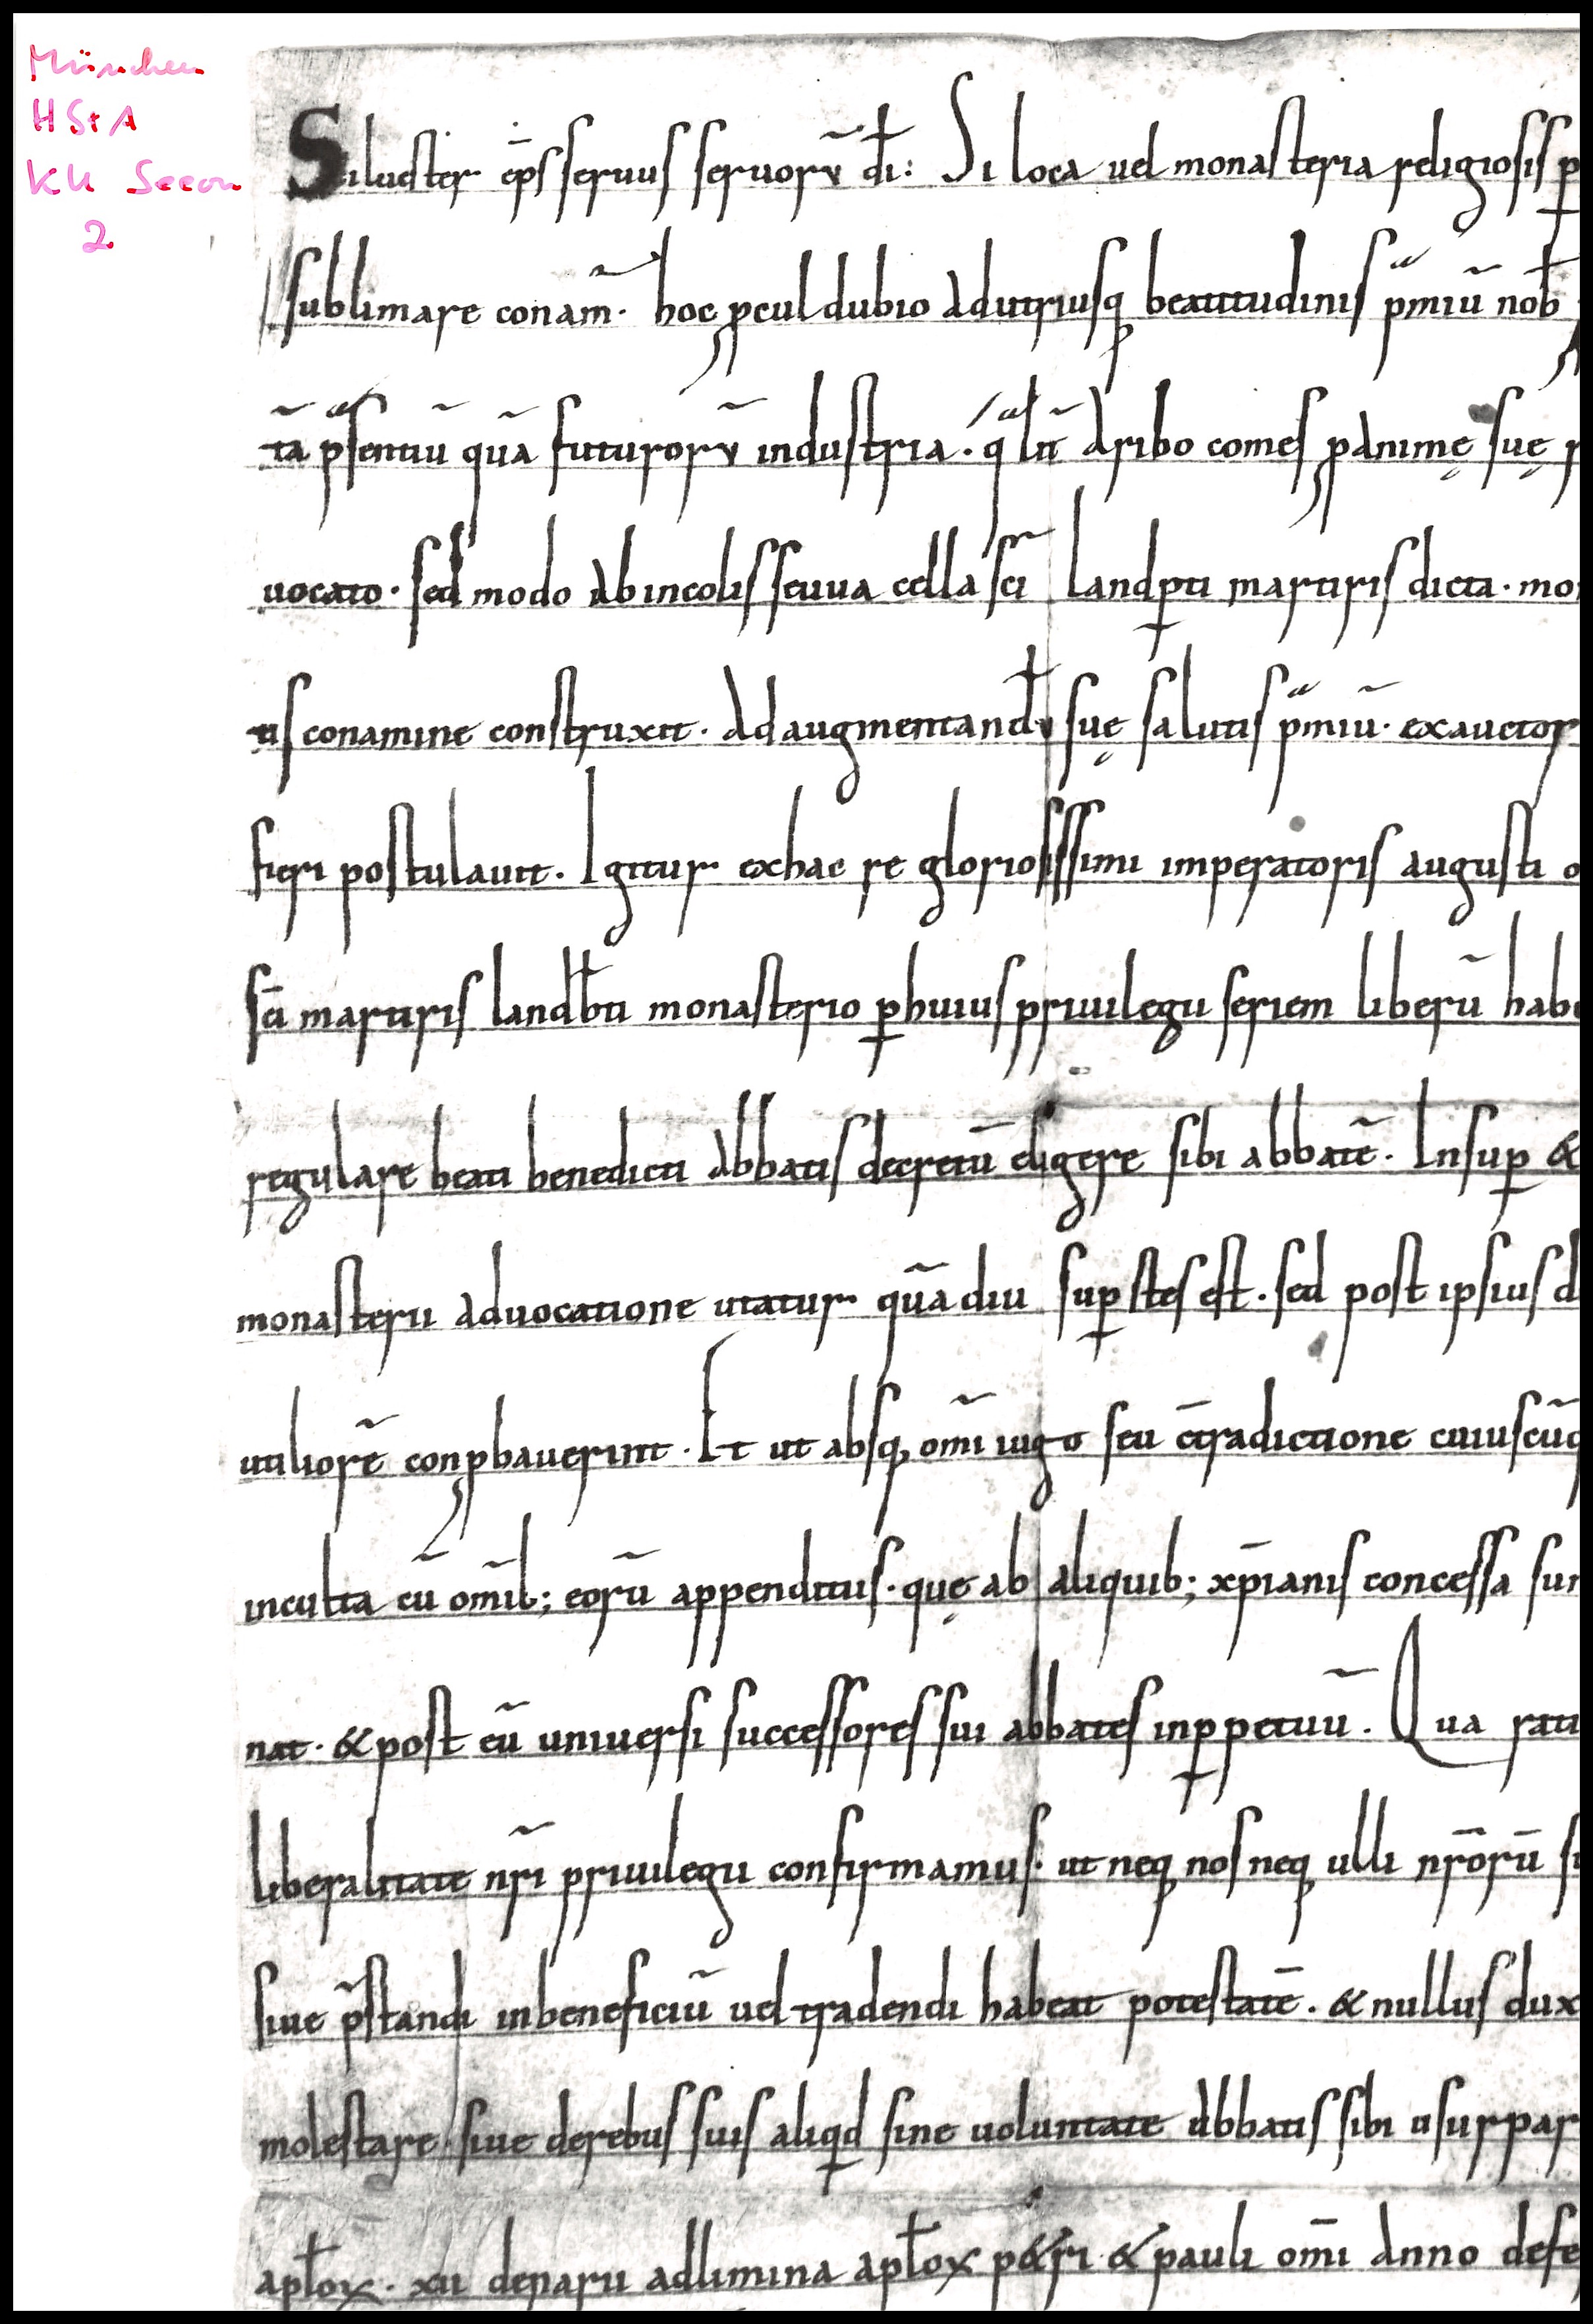 München
HStA
KU Seeon
2
Siluester ep̄s seruus seruorū dī: Si loca uel monasteria religiosis p̲
sublimare conam̃. hoc ꝓcul dubio ad utriusq; beatitudinis p̃miū nob̄
tā p̃sentiū quā futurorū industria. q̃lĩt aribo comes ꝓ animę suę
uocato. sed modo ab incolis seuua cella sc̄i landꝑti martiris dicta.
us conamine construxit. Ad augmentandū suę salutis p̃miū. ex auctor
fieri postulauit. Igitur ex hac re gloriosissimi imperatoris augusti o
sc̄i martiris landb̄ti monasterio ꝑ huius priuilegii seriem liberū hab
regulare beati benedicti abbatis decretū eligere sibi abbatē. Insuꝑ &
monasterii aduocatione utatur quādiu suꝑstes est. sed post ipsius d
utiliorē conꝓbauerint. Et ut absq; om̄i iugo seu c̄tradictione cuiuscūq
inculta cū om̄ib; eorū appenditiis. quę ab aliquib; xp̄ianis concessa sun
nat. & post eū uniuersi successores sui abbates in ꝑpetuū. Qua rati
liberalitate nr̄i priuilegii confirmamus. ut neq; nos neq; ulli nr̄orū s
siue p̃standi in beneficiū uel tradendi habeat potestatē. & nullus dux
molestare. siue de rebus suis aliqd̲ sine uoluntate abbatis sibi usurpar
apl̄oꝝ. xii denarii ad limina apl̄oꝝ p&ri & pauli om̄i anno defe